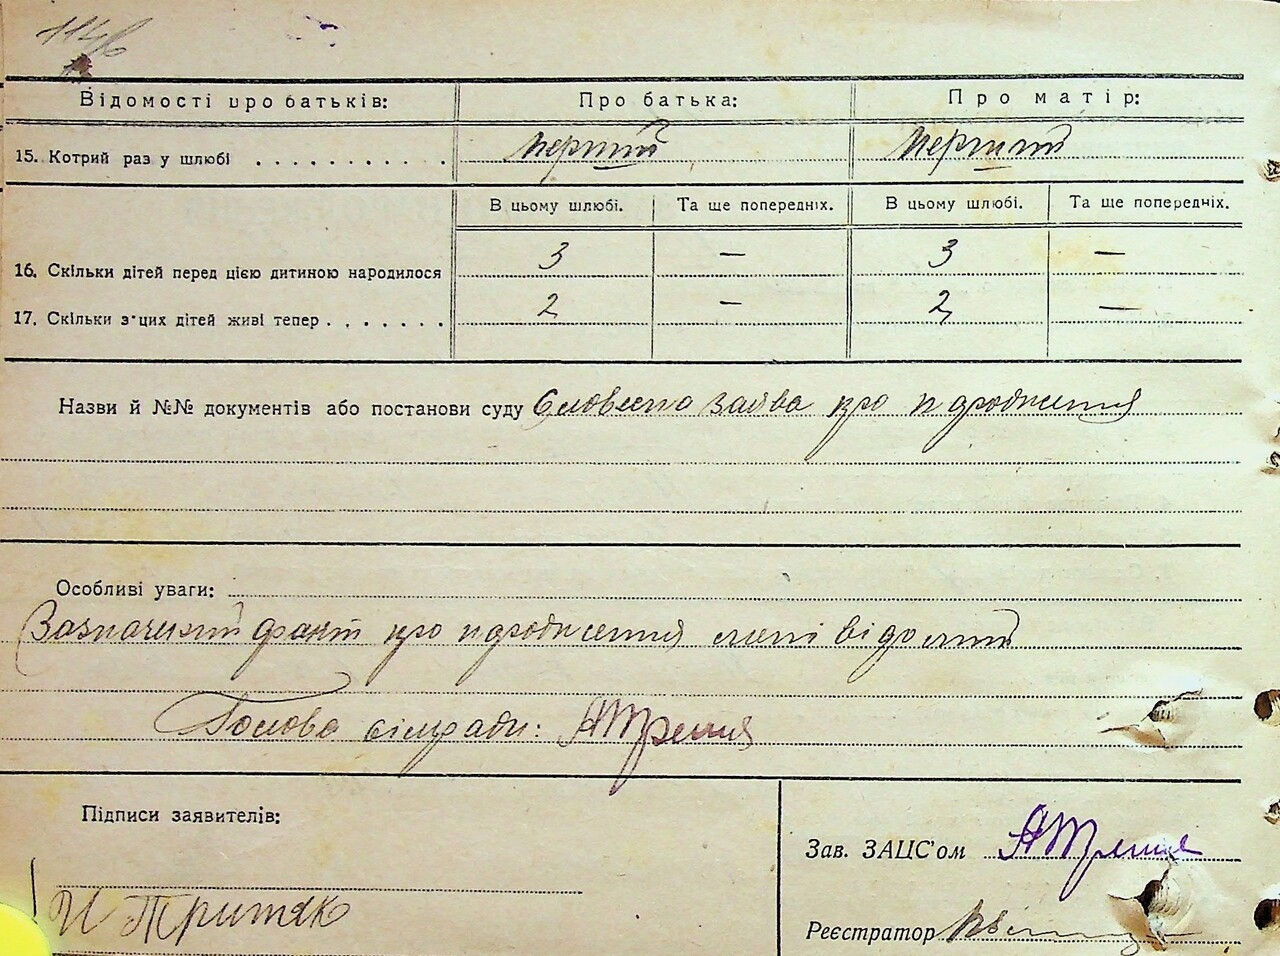 Відомості про батьків: Про батька: Про матір:
15. Котрий раз у шлюбі . . . . . . . . . . . перший перший
В цьому шлюбі. Та ще попередніх. В цьому шлюбі. Та ще попередніх.
16. Скільки дітей перед цією дитиною народилося 3 — 3 —
17. Скільки з цих дітей живі тепер . . . . . . . 2 — 2 —
Назви й №№ документів або постанови суду Словесна заява про народження
Особливі уваги:
Зазначений факт про народження мені відомий
Голова сільради:
Підписи заявителів:
Зав. ЗАЦС'ом
И Притяк
Реєстратор